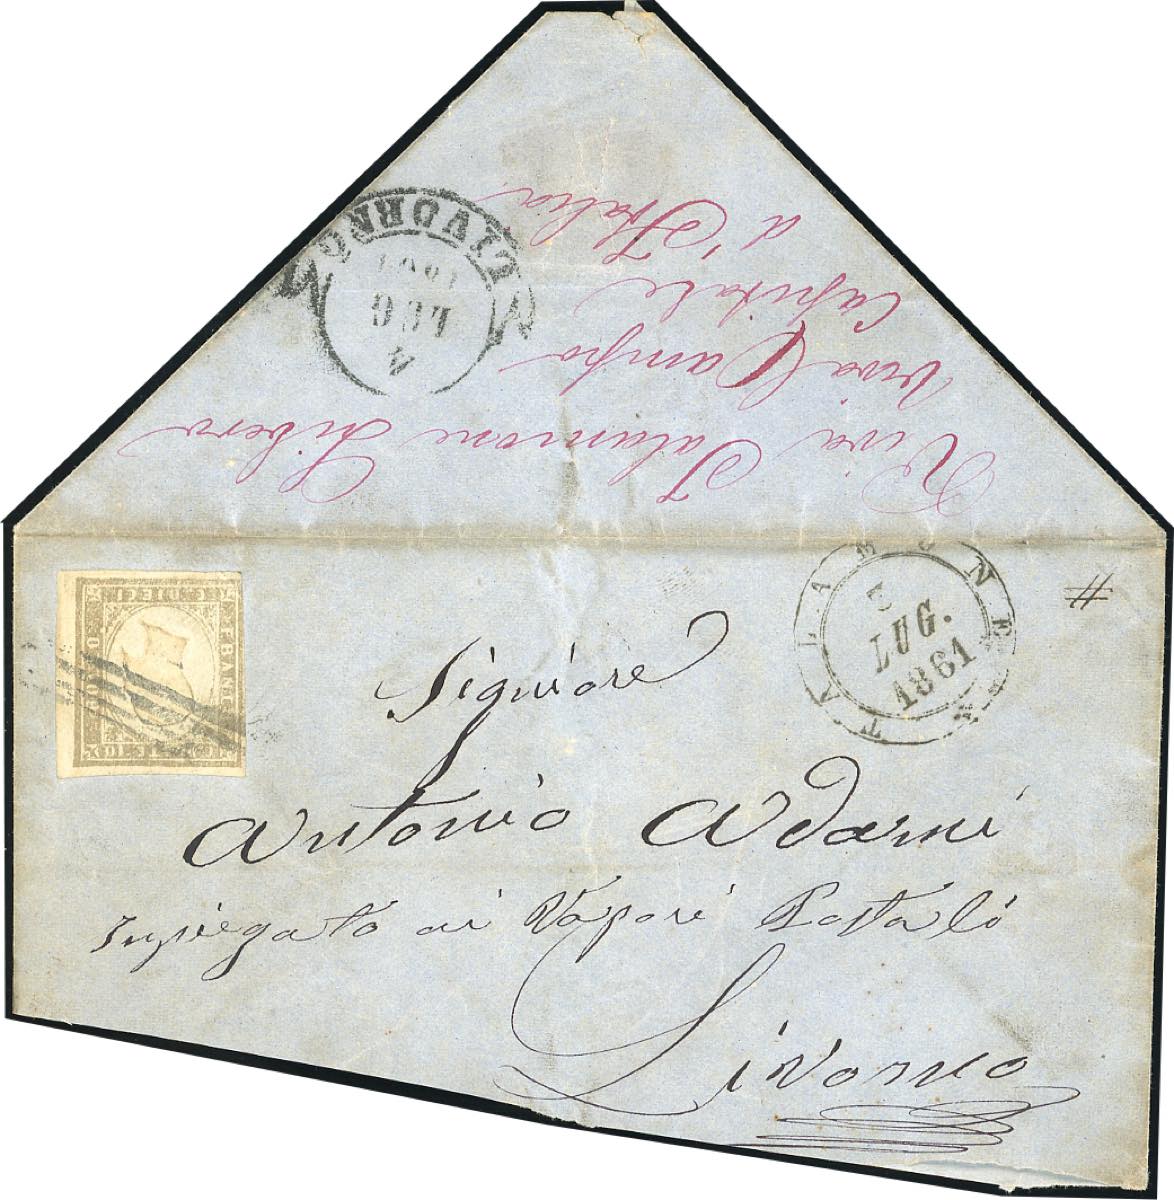 Viva Talamone Libero
Viva Campo
Capitale
d'Italia
LIVORNO
4
LUG
1861
TALAMONE
3
LUG.
1861
Signiore
Antonio Adami
Inpiegato ai Vapori Postali
Livorno